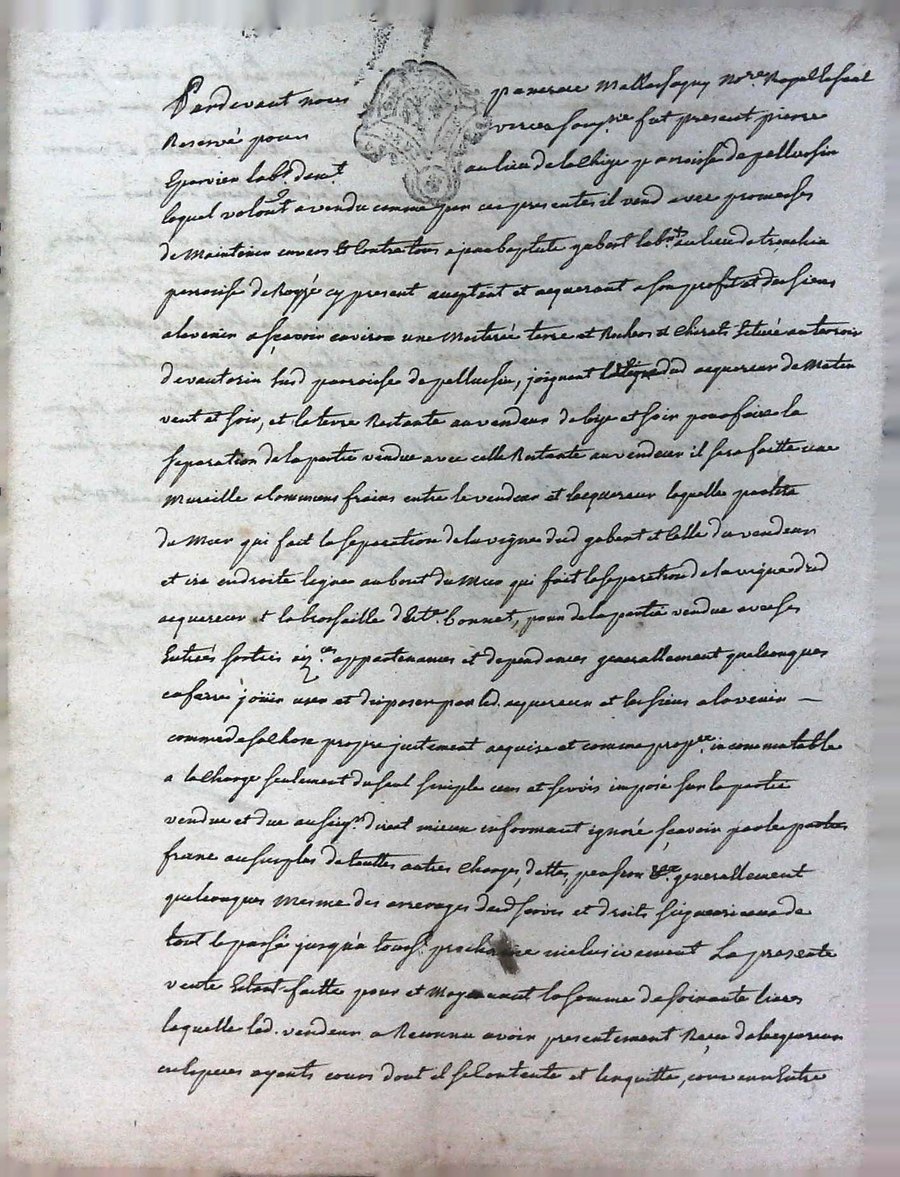 Pardevant nous pancrace Mallassagny No.re Royal le seul
Reservé pour soug.né fut present pierre
Eparvier lab.r dem.t au lieu de la Chize parroisse de pellussin
lequel volont.t a vendu comme par ces presentes il vend avec promesses
de Maintenir envers Et Contre tous a jean baptiste gabert lab.r au lieu de
parroisse de cy present aceptant et aquerant a son profit et des siens
a lavenir a scavoir environ une Mesterée terre et Rochers et Chirats Située au terroir
de vautorin susd parroisse de pellussin, joignant dud acquereur de Matin
vent et soir, et la terre Restante au vendeur de bize et soir pour faire la
separation de la partie vendue avec celle Restante au vendeur il sera faitte une
Muraille a Communs fraix entre le vendeur et lacquereur laquelle
du Mur qui fait la separation de la vigne dud gabert et Celle du vendeur
et ira en droite ligne au bout du Mur qui fait la separation de la vigne dud
acquereur et la brossaille d'Et.e Bonnet, pour de la partie vendue avec ses
Entrées sorties appartenances et dependances generallement quelconques
en faire jouir user et disposer par led. acquereur et les siens a lavenir —
comme de sa Chose propre justement acquise et comme prop.re incommutable
a la Charge seulement du seul simple cens et servis imposé sur la partie
vendue et due au seig.r direct mieux informant ignoré scavoir par les parties
franc au surplus de touttes autres Charges, dettes, pension &.a generallement
quelconques Mesme des arrerages desd servis et droits seigneuriaux de
tout le passé jusqu'a touss.t prochaine inclusivement La presente
vente Etant faitte pour et Moyenant la somme de soixante livres
laquelle led. vendeur a Reconnu avoir presentement Reçu de lacquereur
en Especes ayants cours dont il se Contente et len quitte,